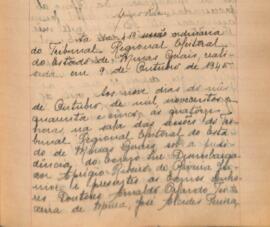 Ata da 13ª sessão ordinária
do Tribunal Regional Eleitoral
do Estado de Minas Gerais, reali-
sada em 9 de Outubro de 1945
Aos nove dias do mês
de Outubro, de mil novecentos e
quarenta e cinco, às quatorze
horas, na sala das sessões do Tri-
bunal Regional Eleitoral do Esta-
do de Minas Gerais sob a presi-
dência do Exmo Snr Desembarga-
dor Ribeiro de Oliveira
e presentes os Exmos Senho-
res Doutores Orlando Tei-
xeira de José